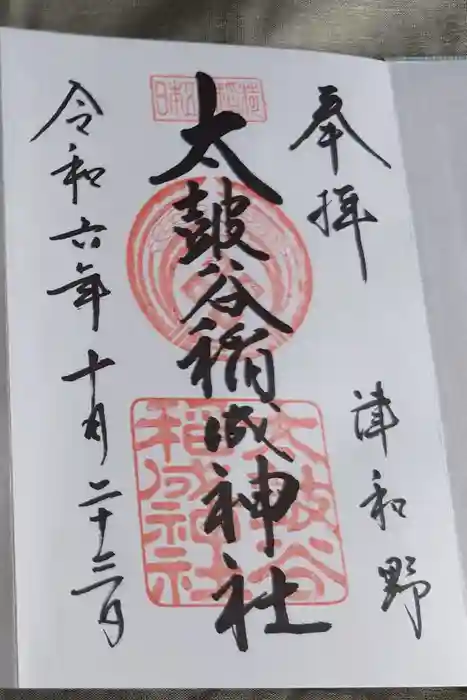 奉拝
津和野
太皷谷稲成神社
令和六年十月二十三日
太皷谷
稲成神社